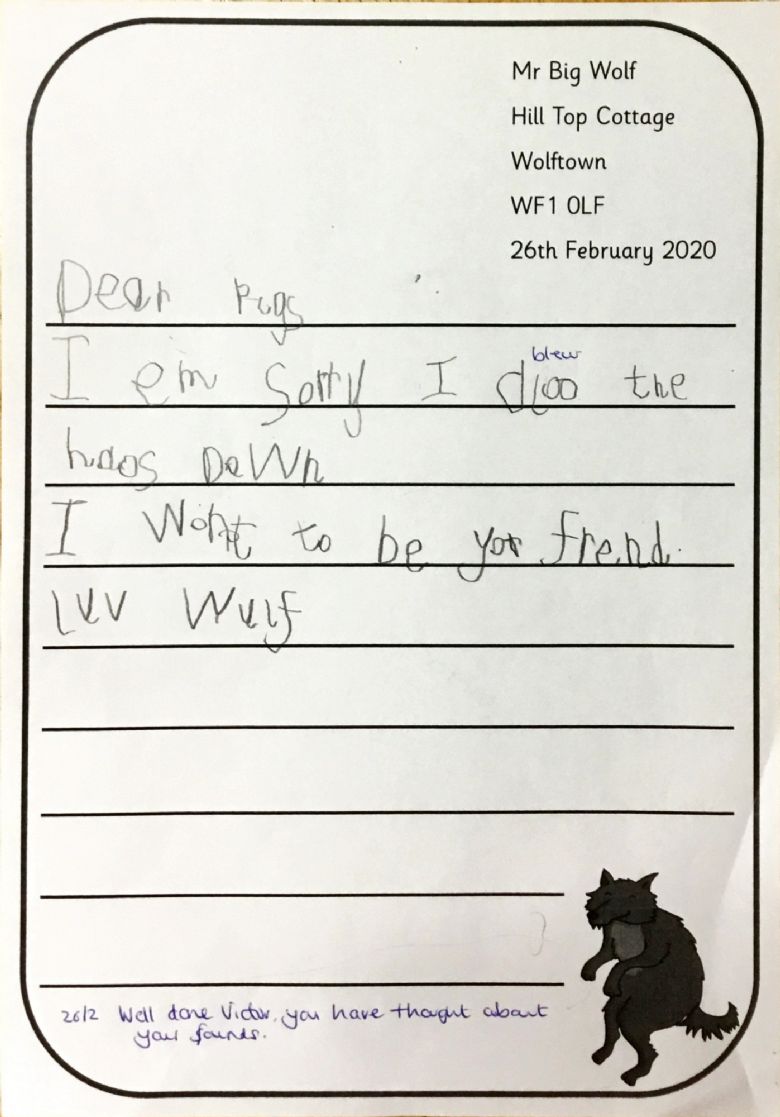 Mr Big Wolf
Hill Top Cottage
Wolftown
WF1 0LF
26th February 2020
Dear Pigs
blew
I em Sorry I dloo the
haos DaWn
I Wont to be yor frend.
luv Wulf
26/2 Well done Victor, you have thought about
your sounds.